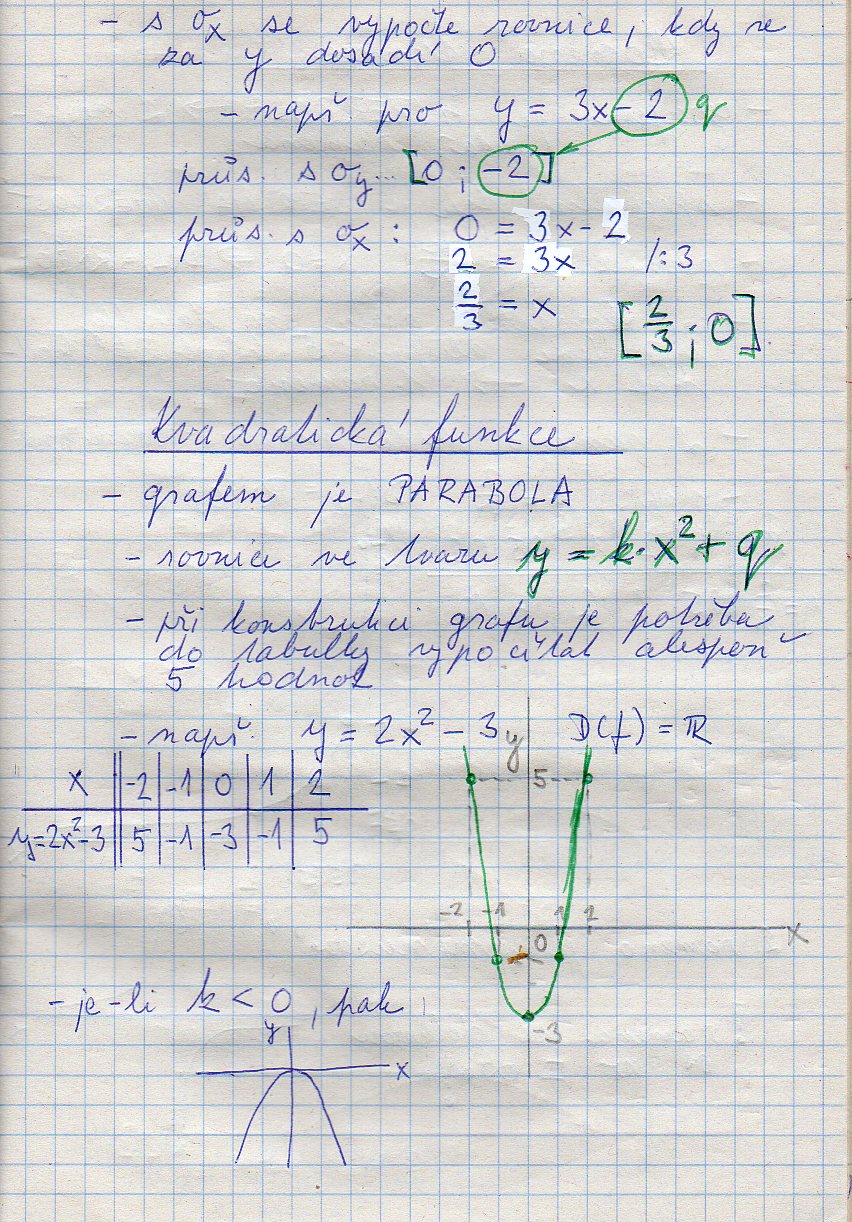 - s o_x se vypočte rovnice, kdy se
za y dosadí 0
- např pro y = 3x - 2 q
průs. s o_y... [0 ; -2]
průs. s o_x : 0 = 3x - 2
2 = 3x /: 3
2/3 = x [2/3 ; 0]
Kvadratická funkce
- grafem je PARABOLA
- rovnice ve tvaru y = k·x² + q
- při konstrukci grafu je potřeba
do tabulky vypočítat alespoň
5 hodnot
- např. y = 2x² - 3 D(f) = ℝ
x -2 -1 0 1 2
y=2x²-3 5 -1 -3 -1 5
y
5
-2 -1 1 2
0
x
-3
- je-li k < 0, pak
y
x